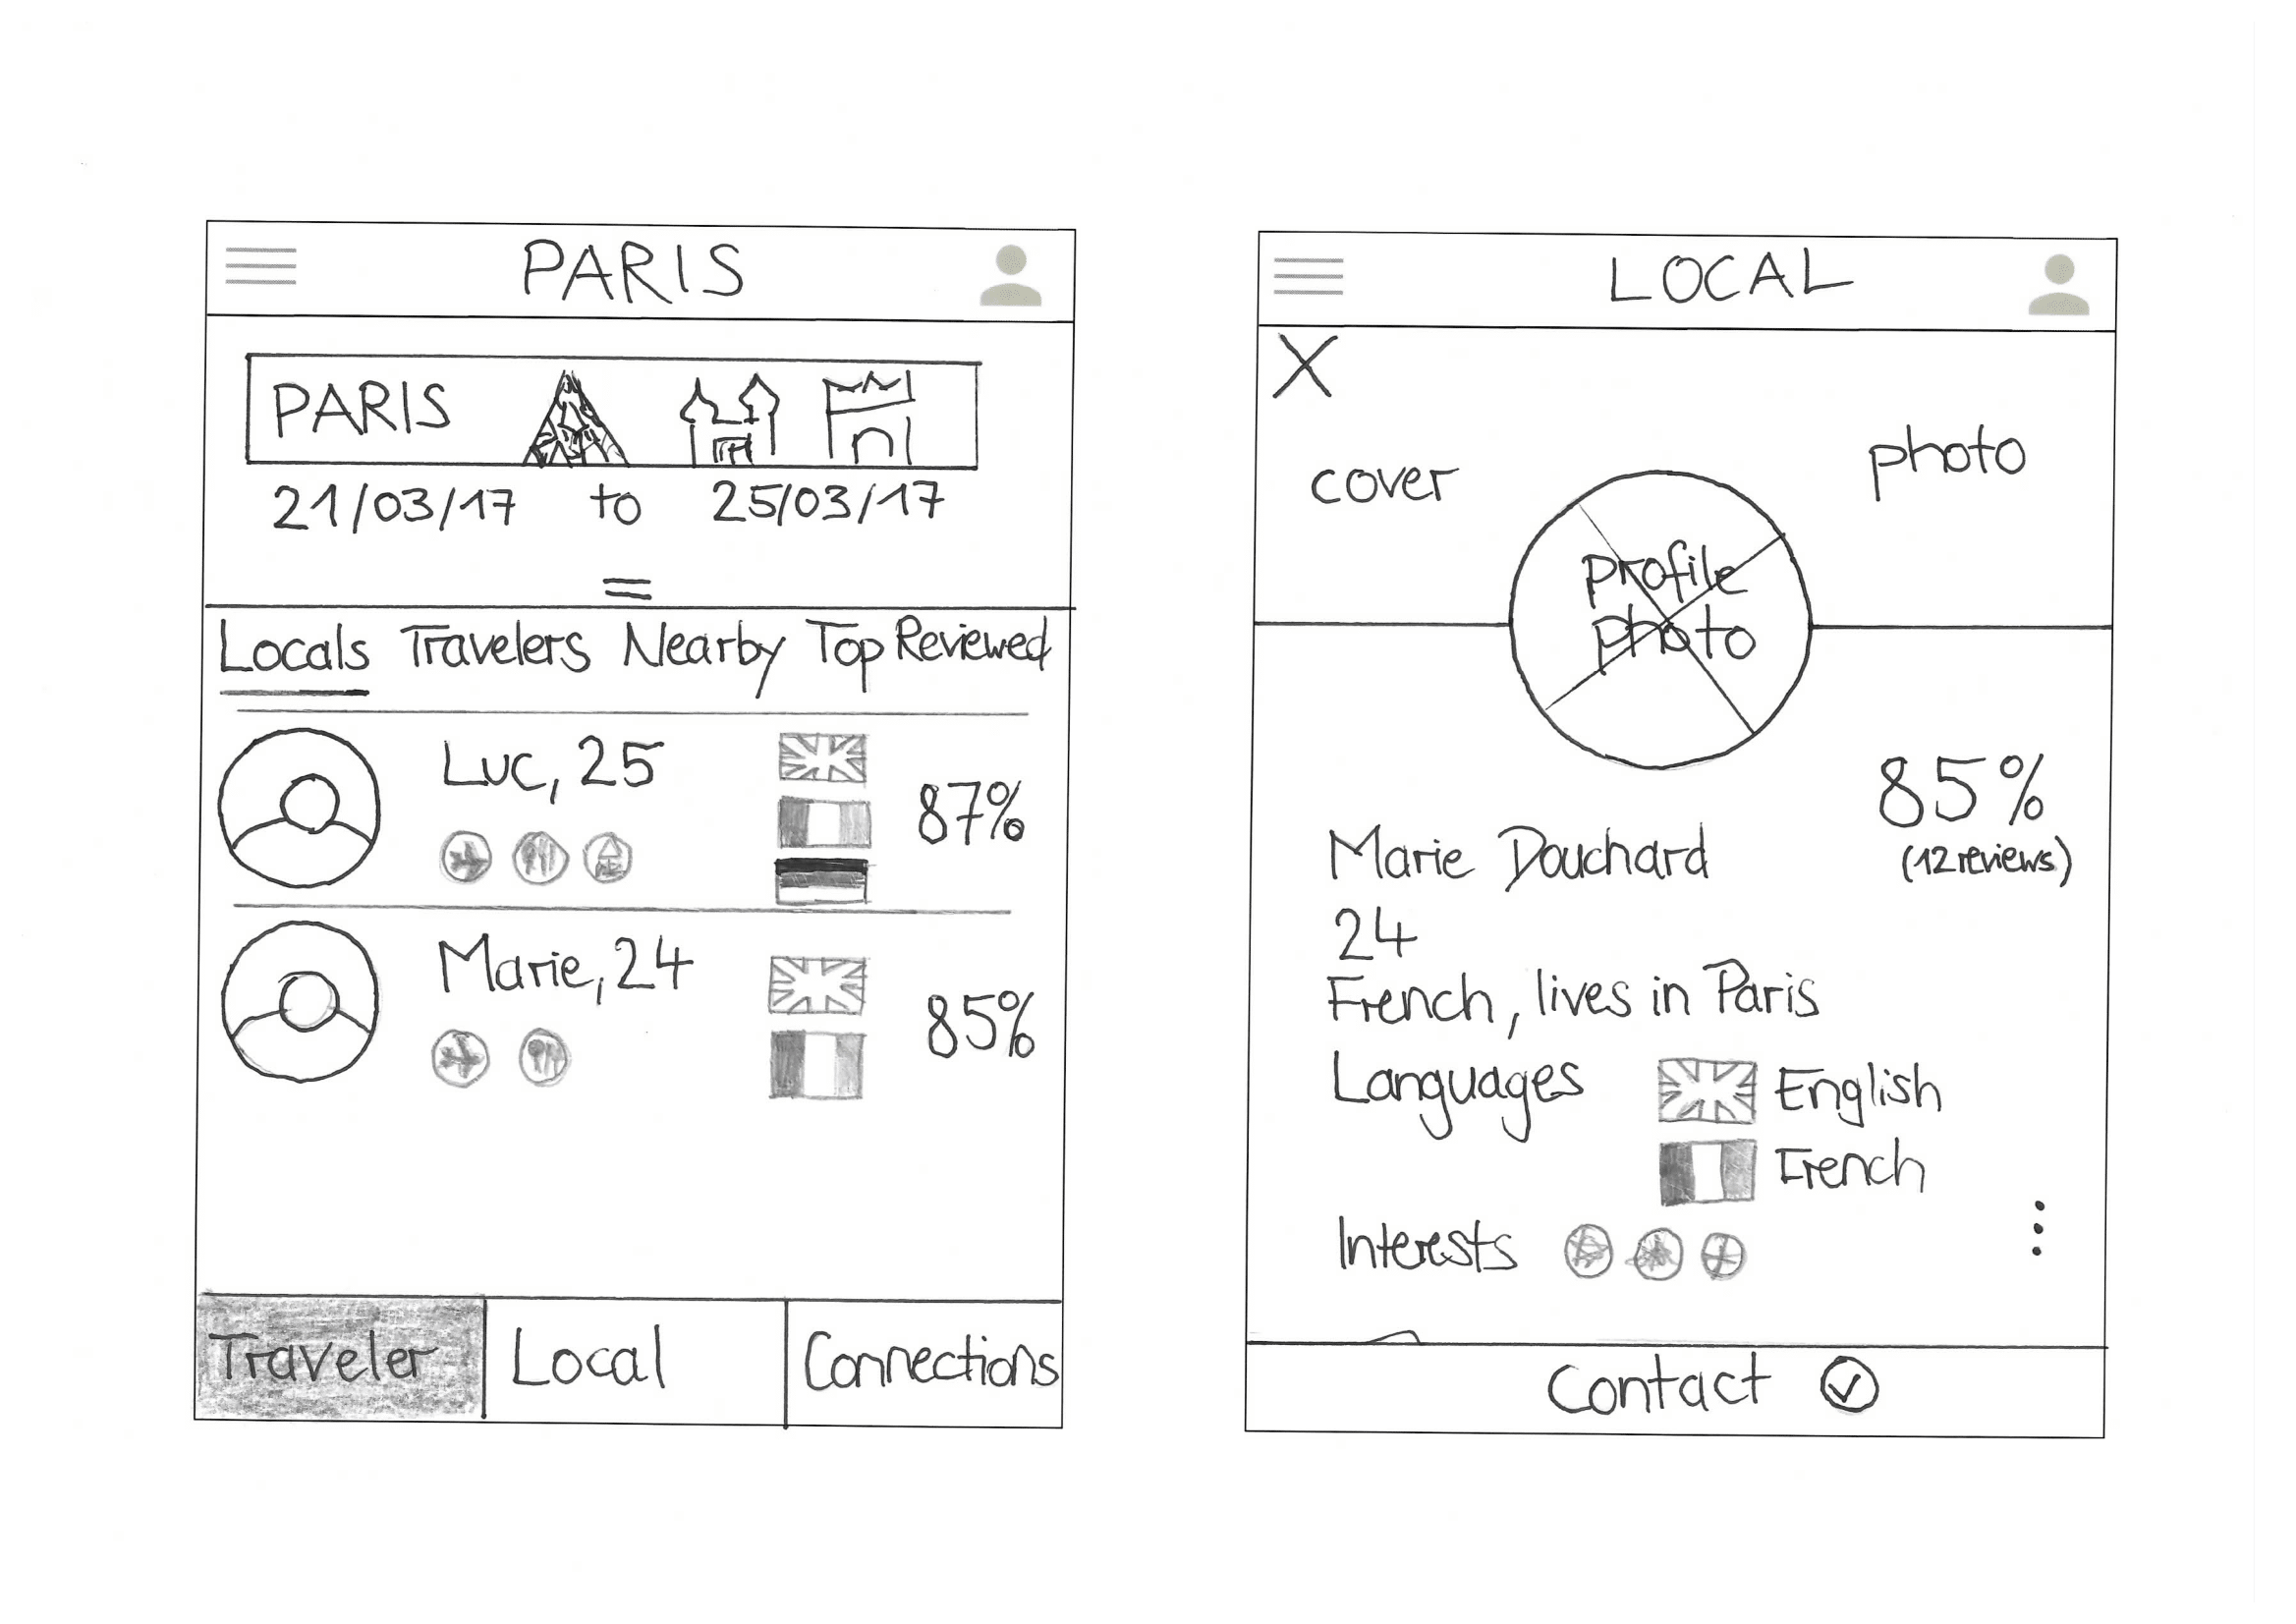 PARIS
PARIS
21/03/17 to 25/03/17
Locals Travelers Nearby Top Reviewed
Luc, 25
87%
Marie, 24
85%
Traveler Local Connections
LOCAL
X
cover photo
profile
photo
85%
(12 reviews)
Marie Douchard
24
French, lives in Paris
Languages English
French
Interests
Contact